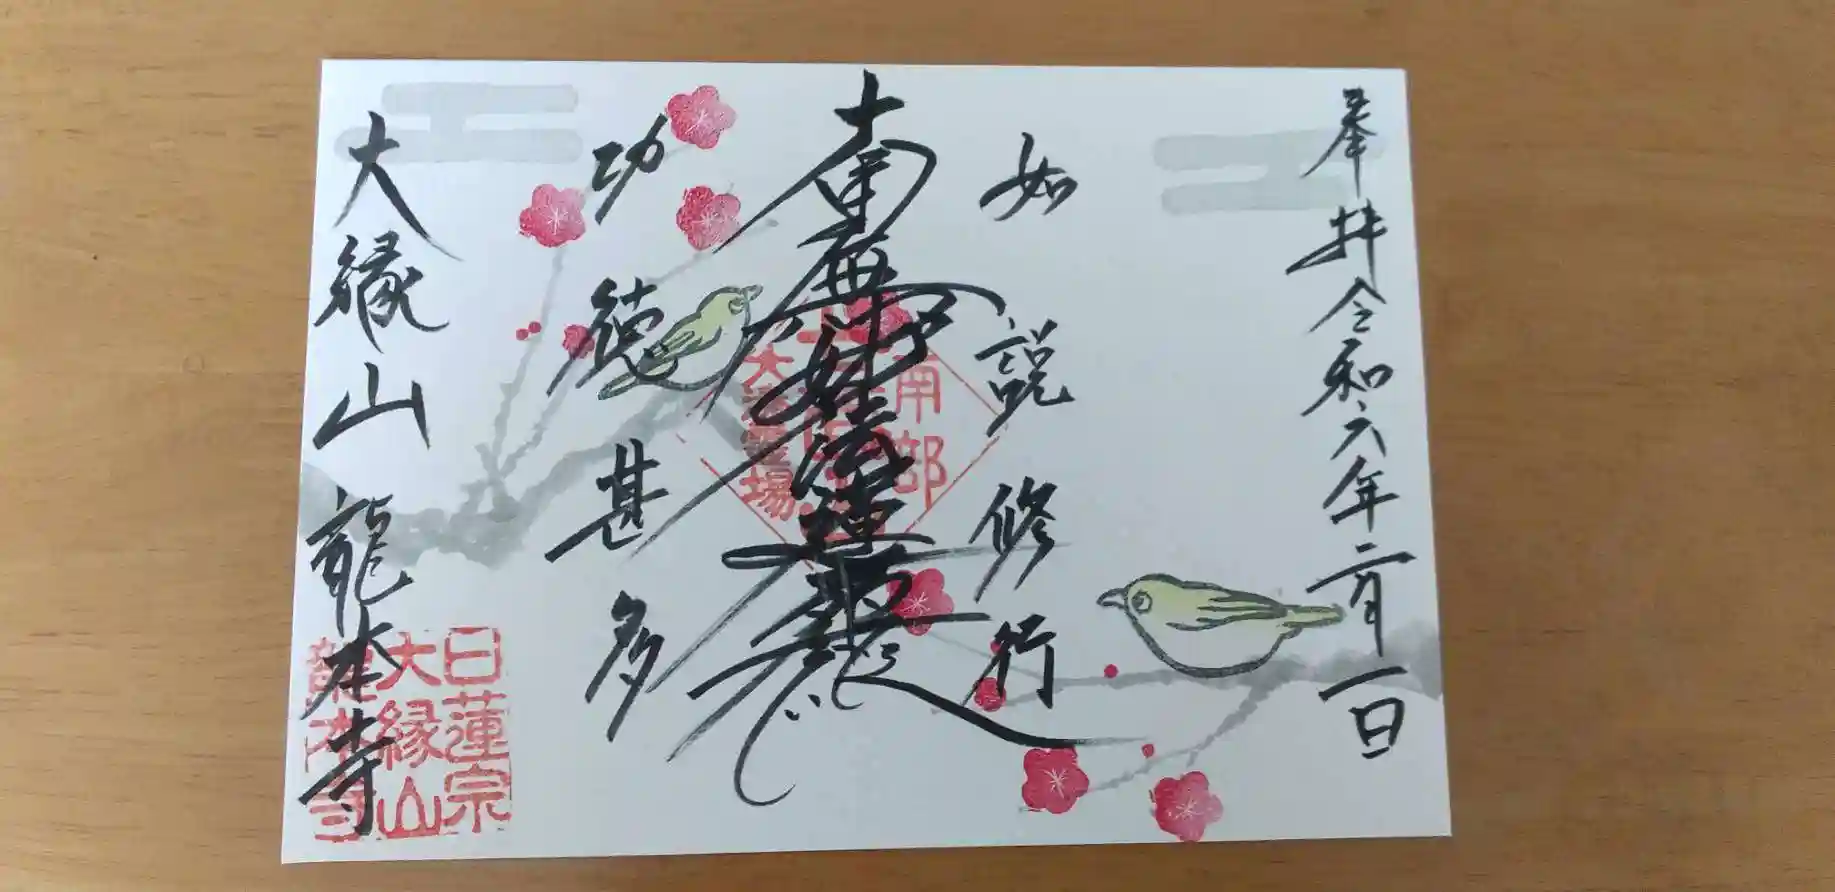 奉拝 令和六年二月一日
如説修行
南無妙法蓮華経
功徳甚多
大縁山 龍本寺
南部
大
霊場
日蓮宗
大縁山
龍本寺